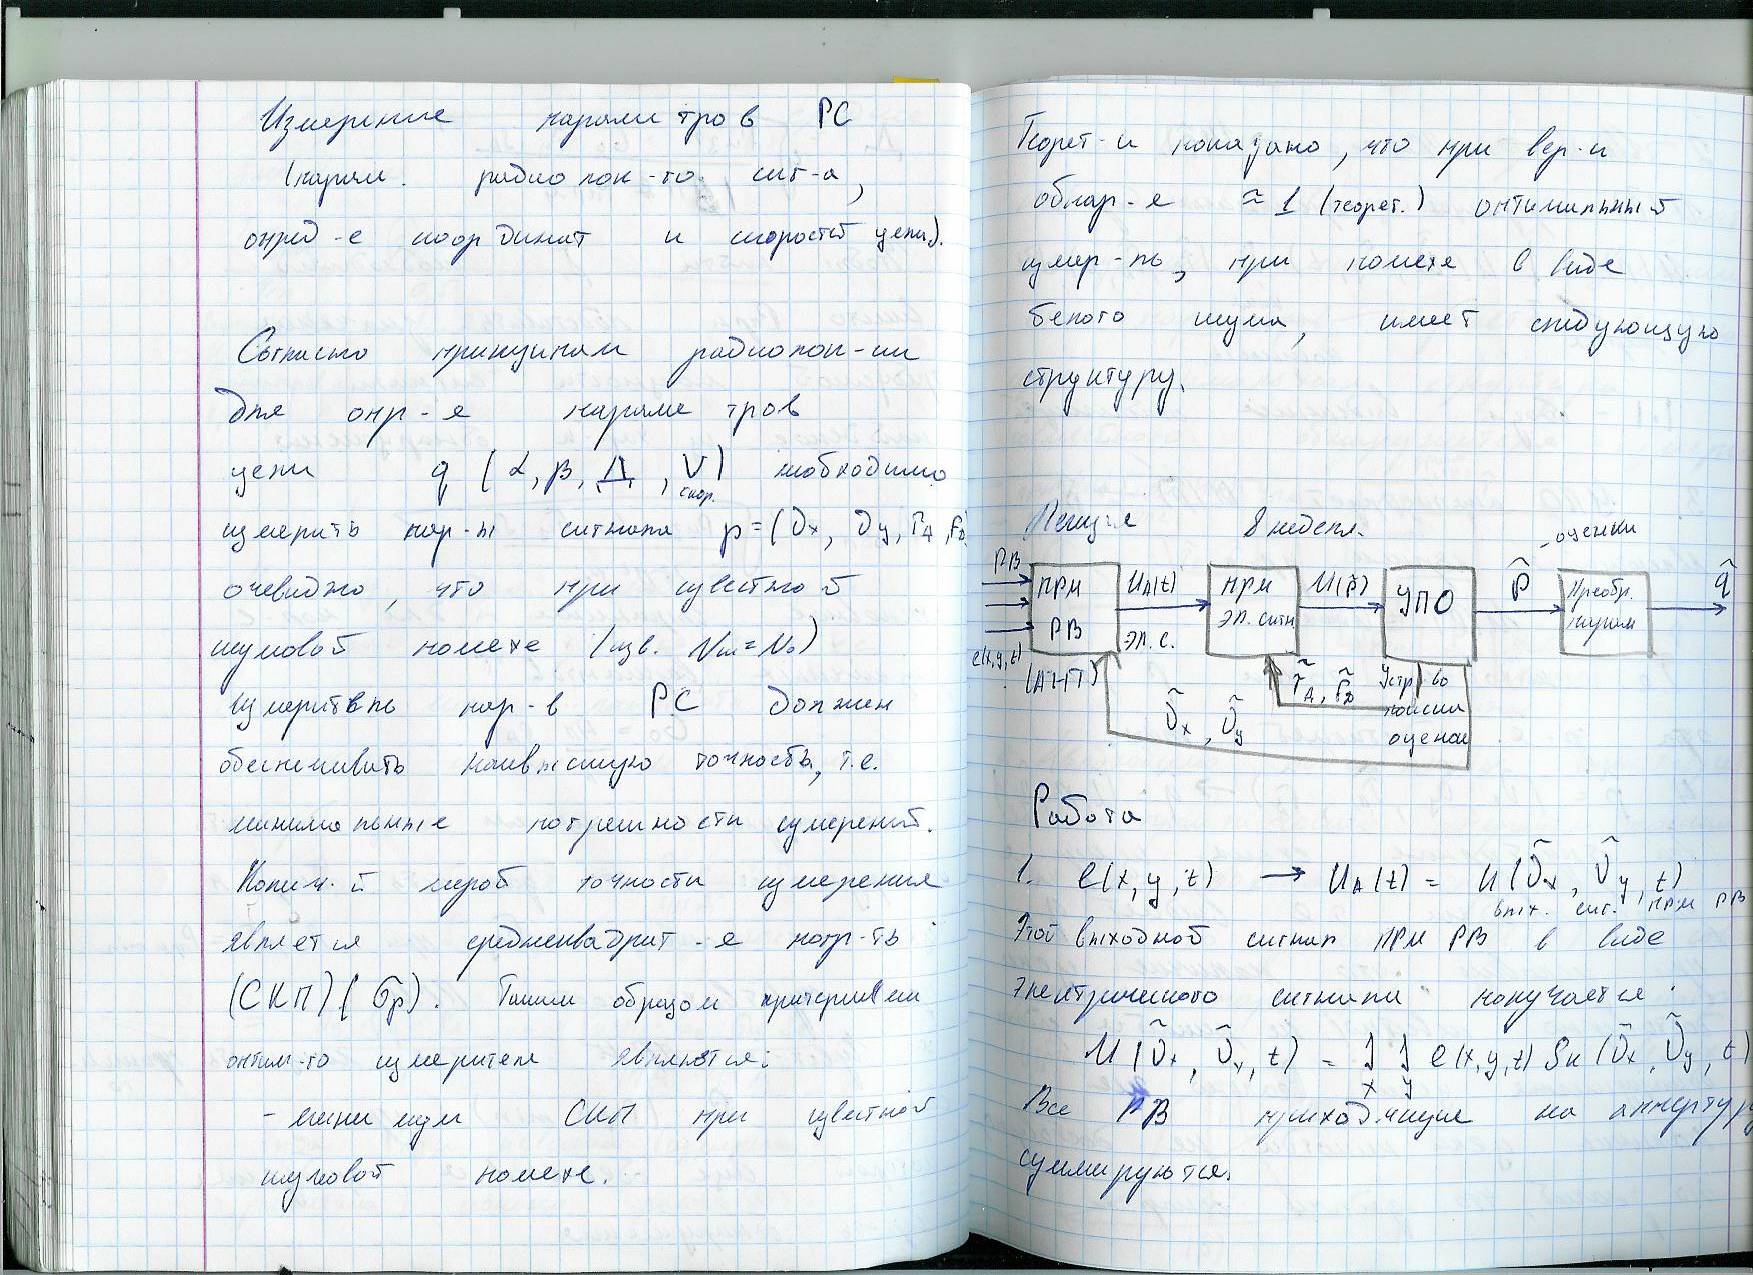 Измерение параметров РС
(парам. радиолок-го сиг-а,
опред-е координат и скоростей цели).
Согласно принципам радиолок-ии
для опр-я параметров
цели q (α, β, Д, V) необходимо
скор.
измерить пар-ы сигнала p=(ϑx, ϑy, τд, Fд)
очевидно, что при известной
шумовой помехе (изв. Nш=N₀)
измеритель пар-в РС должен
обеспечивать наивысшую точность, т.е.
минимальные погрешности измерений.
Колич-й мерой точности измерения
является среднеквадрит-я погр-ть
(СКП) (σp). Таким образом критерием
оптим-го измерителя является:
- минимум СКП при известной
шумовой помехе.
Теорет-и показано, что при вер-и
обнар-я ≈ 1 (теорет.) оптимальный
измер-ль, при помехе в виде
белого шума, имеет следующую
структуру.
Лекция 8 недел.
РВ ПРМ РВ e(x,y,t) (АНТ)
uA(t) эл. с.
ПРМ эл. сигн
U(p̃)
УПО
p̂ - оценки
Преобр. парам
q̂
τ̃д, F̃д
Устр-во поиска оценок
ϑ̃x, ϑ̃y
Работа
1. e(x,y,t) → uA(t) = u(ϑ̃x, ϑ̃y, t)
вых. сиг. ПРМ РВ
Этой выходной сигнал ПРМ РВ в виде
электрического сигнала получается:
U(ϑ̃x, ϑ̃y, t) = ∫x ∫y e(x,y,t) Sк(ϑ̃x, ϑ̃y, t)
Все РВ приходящие на аппертуру
суммируются.